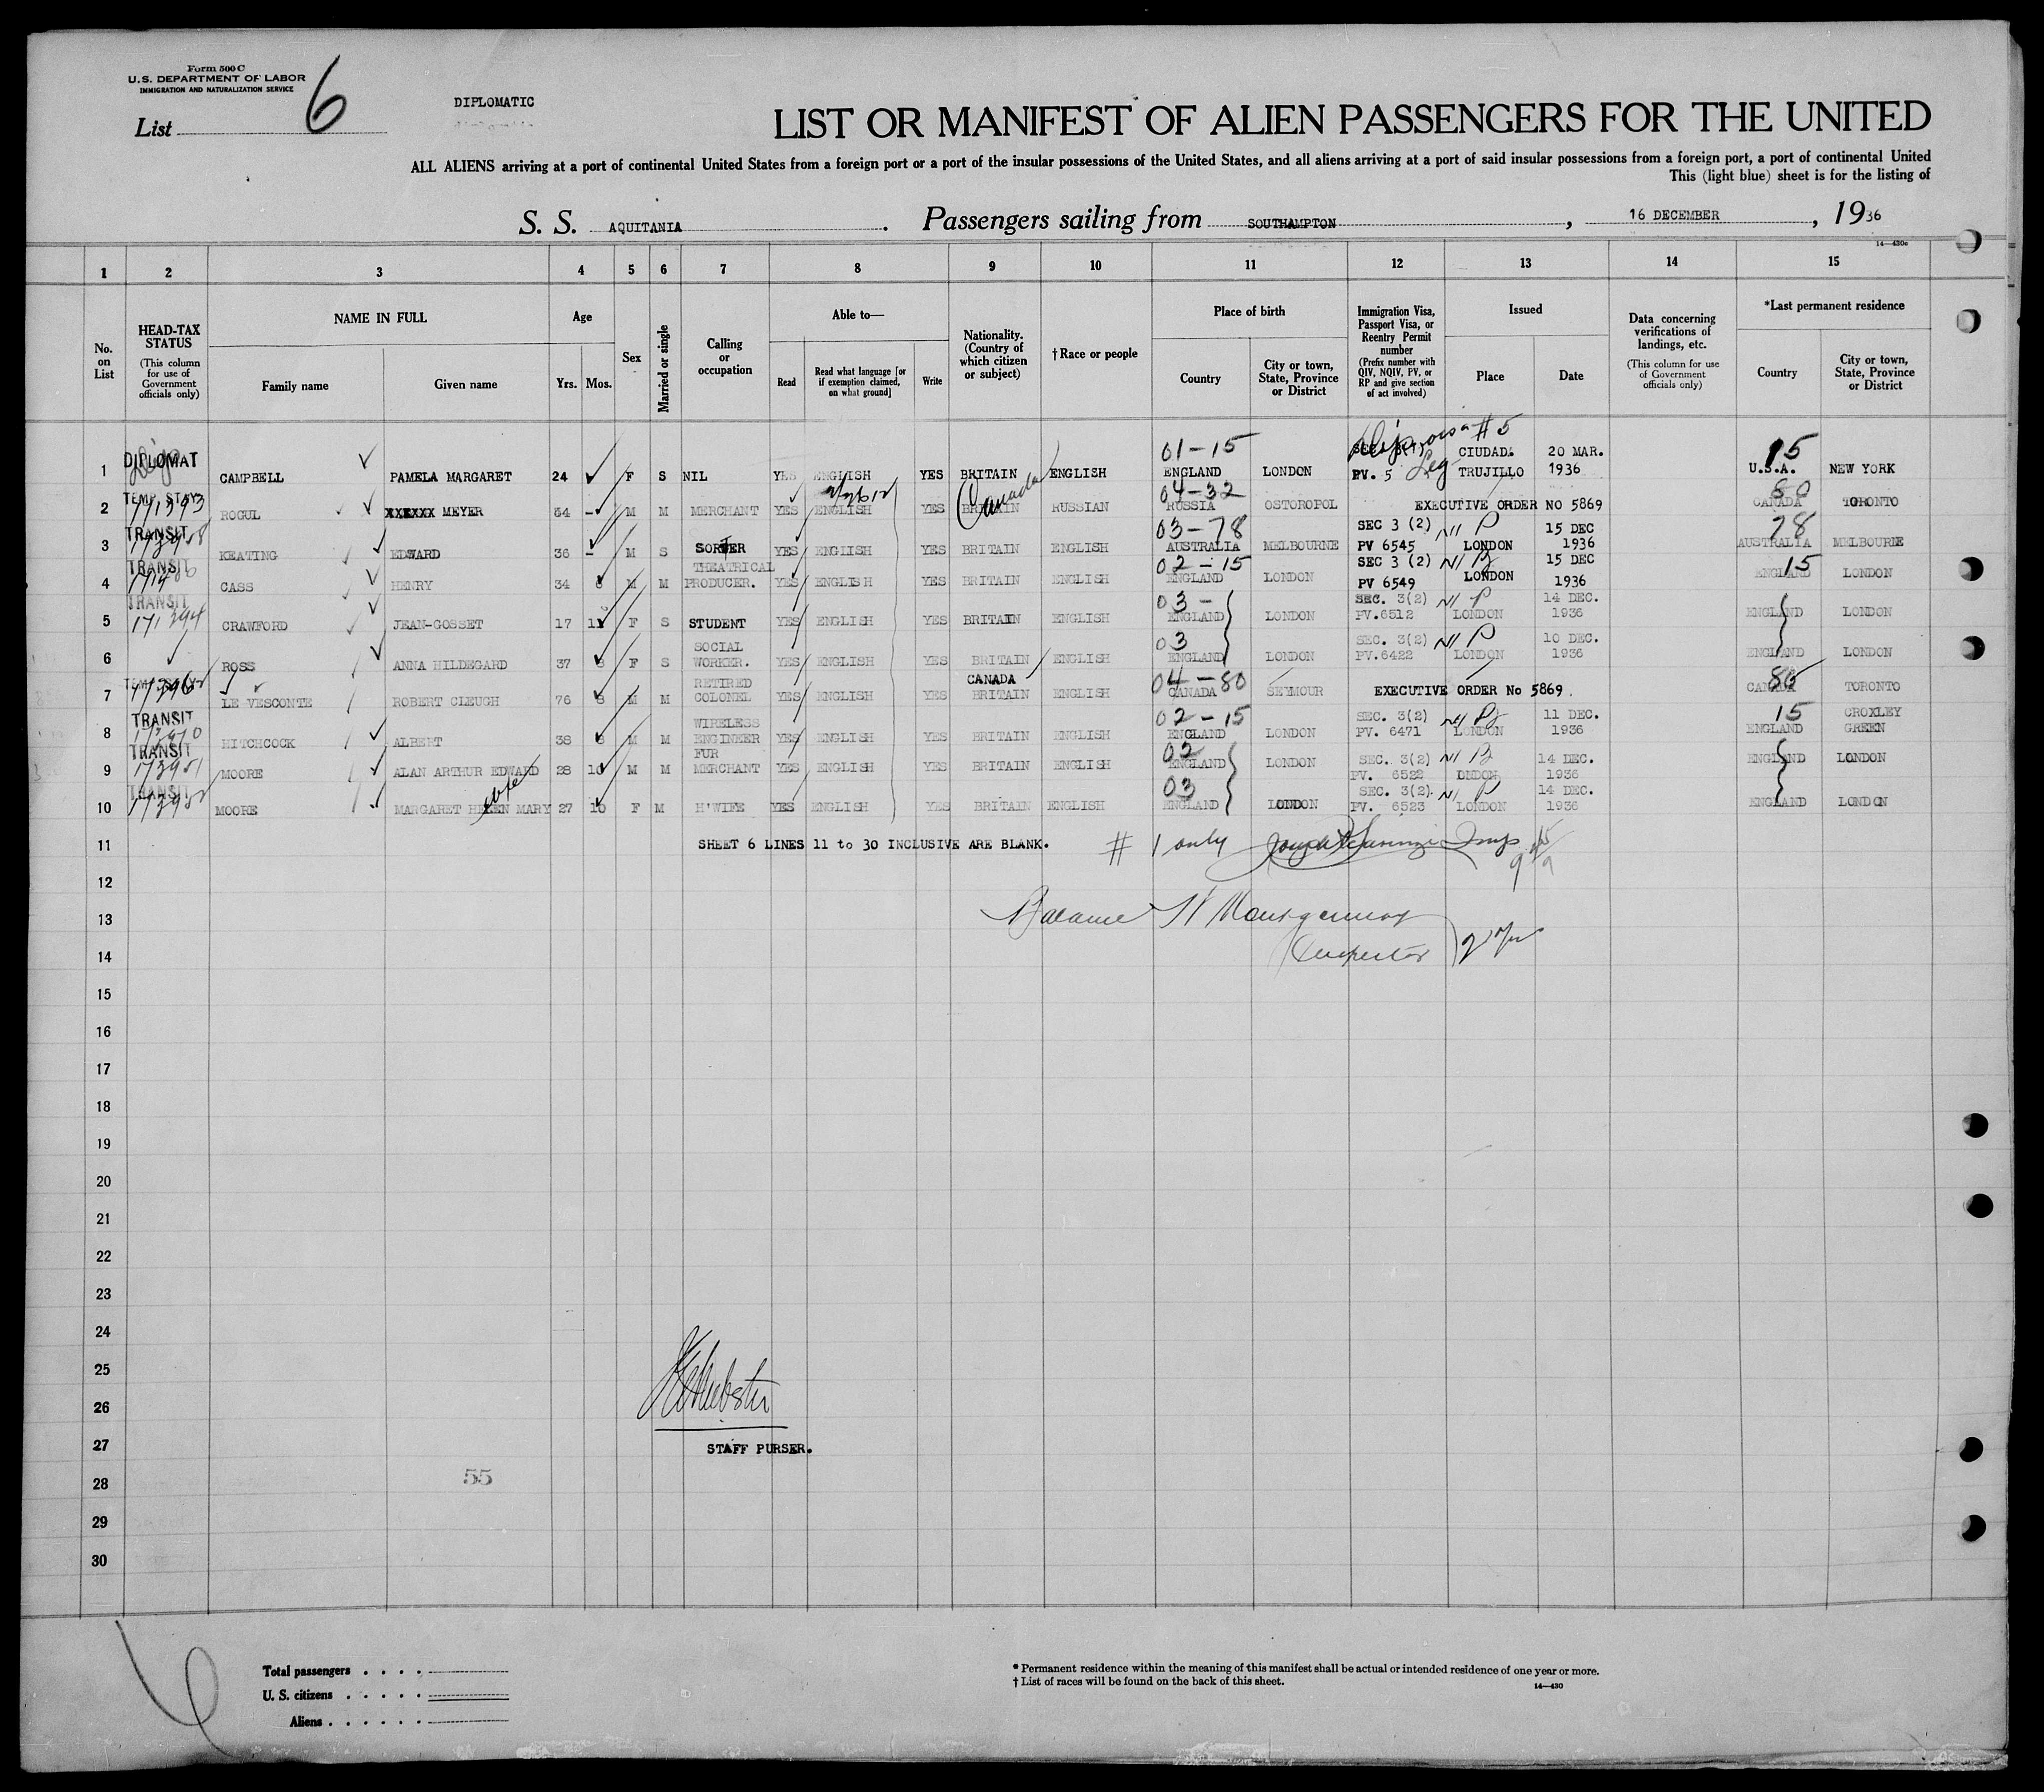 Form 500 C
U.S. DEPARTMENT OF LABOR
IMMIGRATION AND NATURALIZATION SERVICE
List 6
DIPLOMATIC
LIST OR MANIFEST OF ALIEN PASSENGERS FOR THE UNITED
ALL ALIENS arriving at a port of continental United States from a foreign port or a port of the insular possessions of the United States, and all aliens arriving at a port of said insular possessions from a foreign port, a port of continental United
This (light blue) sheet is for the listing of
S. S. AQUITANIA . Passengers sailing from SOUTHAMPTON , 16 DECEMBER , 1936
14—430c
1 2 3 4 5 6 7 8 9 10 11 12 13 14 15
No. on List
HEAD-TAX STATUS (This column for use of Government officials only)
NAME IN FULL
Family name
Given name
Age
Yrs. Mos.
Sex
Married or single
Calling or occupation
Able to—
Read
Read what language [or if exemption claimed, on what ground]
Write
Nationality. (Country of which citizen or subject)
†Race or people
Place of birth
Country
City or town, State, Province or District
Immigration Visa, Passport Visa, or Reentry Permit number (Prefix number with QIV, NQIV, PV, or RP and give section of act involved)
Issued
Place
Date
Data concerning verifications of landings, etc. (This column for use of Government officials only)
*Last permanent residence
Country
City or town, State, Province or District
01-15 #5 15
DIPLOMAT CIUDAD. 20 MAR.
1 CAMPBELL PAMELA MARGARET 24 F S NIL YES ENGLISH YES BRITAIN ENGLISH ENGLAND LONDON PV. 5 Leg TRUJILLO 1936 U.S.A. NEW YORK
TEMP. STAY Canada 04-32 80
2 ROGUL XXXXXX MEYER 54 - M M MERCHANT YES ENGLISH YES BRITAIN RUSSIAN RUSSIA OSTOROPOL EXECUTIVE ORDER NO 5869 CANADA TORONTO
TRANSIT 03-78 SEC 3 (2) 15 DEC 78
3 KEATING EDWARD 36 - M S SORTER YES ENGLISH YES BRITAIN ENGLISH AUSTRALIA MELBOURNE PV 6545 LONDON 1936 AUSTRALIA MELBOURNE
TRANSIT THEATRICAL 02-15 SEC 3 (2) 15 DEC 15
4 CASS HENRY 34 M M PRODUCER. YES ENGLISH YES BRITAIN ENGLISH ENGLAND LONDON PV 6549 LONDON 1936 ENGLAND LONDON
TRANSIT 03- SEC. 3(2) 14 DEC.
5 CRAWFORD JEAN-GOSSET 17 11 F S STUDENT YES ENGLISH YES BRITAIN ENGLISH ENGLAND LONDON PV.6512 LONDON 1936 ENGLAND LONDON
SOCIAL 03 SEC. 3(2) 10 DEC.
6 ROSS ANNA HILDEGARD 37 F S WORKER. YES ENGLISH YES BRITAIN ENGLISH ENGLAND LONDON PV.6422 LONDON 1936 ENGLAND LONDON
RETIRED CANADA 04-80 80
7 LE VESCONTE ROBERT CLEUGH 76 M M COLONEL YES ENGLISH YES BRITAIN ENGLISH CANADA SEYMOUR EXECUTIVE ORDER No 5869. CANADA TORONTO
TRANSIT WIRELESS 02-15 SEC. 3(2) 11 DEC. 15 CROXLEY
8 HITCHCOCK ALBERT 38 M M ENGINEER YES ENGLISH YES BRITAIN ENGLISH ENGLAND LONDON PV. 6471 LONDON 1936 ENGLAND GREEN
TRANSIT FUR 02 SEC. 3(2) 14 DEC.
9 MOORE ALAN ARTHUR EDWARD 28 10 M M MERCHANT YES ENGLISH YES BRITAIN ENGLISH ENGLAND LONDON PV. 6522 LONDON 1936 ENGLAND LONDON
TRANSIT wife 03 SEC. 3(2). 14 DEC.
10 MOORE MARGARET HELEN MARY 27 10 F M H'WIFE YES ENGLISH YES BRITAIN ENGLISH ENGLAND LONDON PV. 6523 LONDON 1936 ENGLAND LONDON
11 SHEET 6 LINES 11 to 30 INCLUSIVE ARE BLANK. # 1 only
12
13 Balance Montgomery
14 Inspector
15
16
17
18
19
20
21
22
23
24
25
26 Webster
27 STAFF PURSER.
28 55
29
30
Total passengers . . . .
U. S. citizens . . . . .
Aliens . . . . . .
* Permanent residence within the meaning of this manifest shall be actual or intended residence of one year or more.
† List of races will be found on the back of this sheet.
14—430